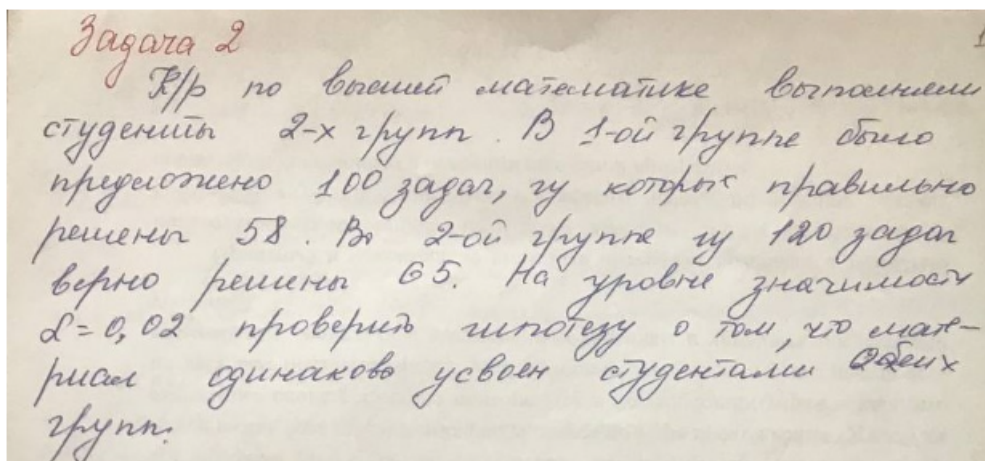 Задача 2
К/р по высшей математике выполняли
студенты 2-х групп. В 1-ой группе было
предложено 100 задач, из которых правильно
решены 58. Во 2-ой группе из 120 задач
верно решены 65. На уровне значимости
α = 0,02 проверить гипотезу о том, что мате-
риал одинаково усвоен студентами обеих
групп.